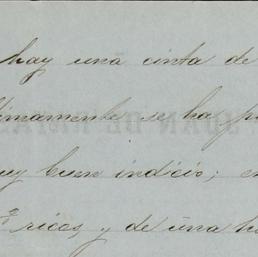 hay una cinta de
timamente se ha p
uy buen indicio; e
ricas, y de una h